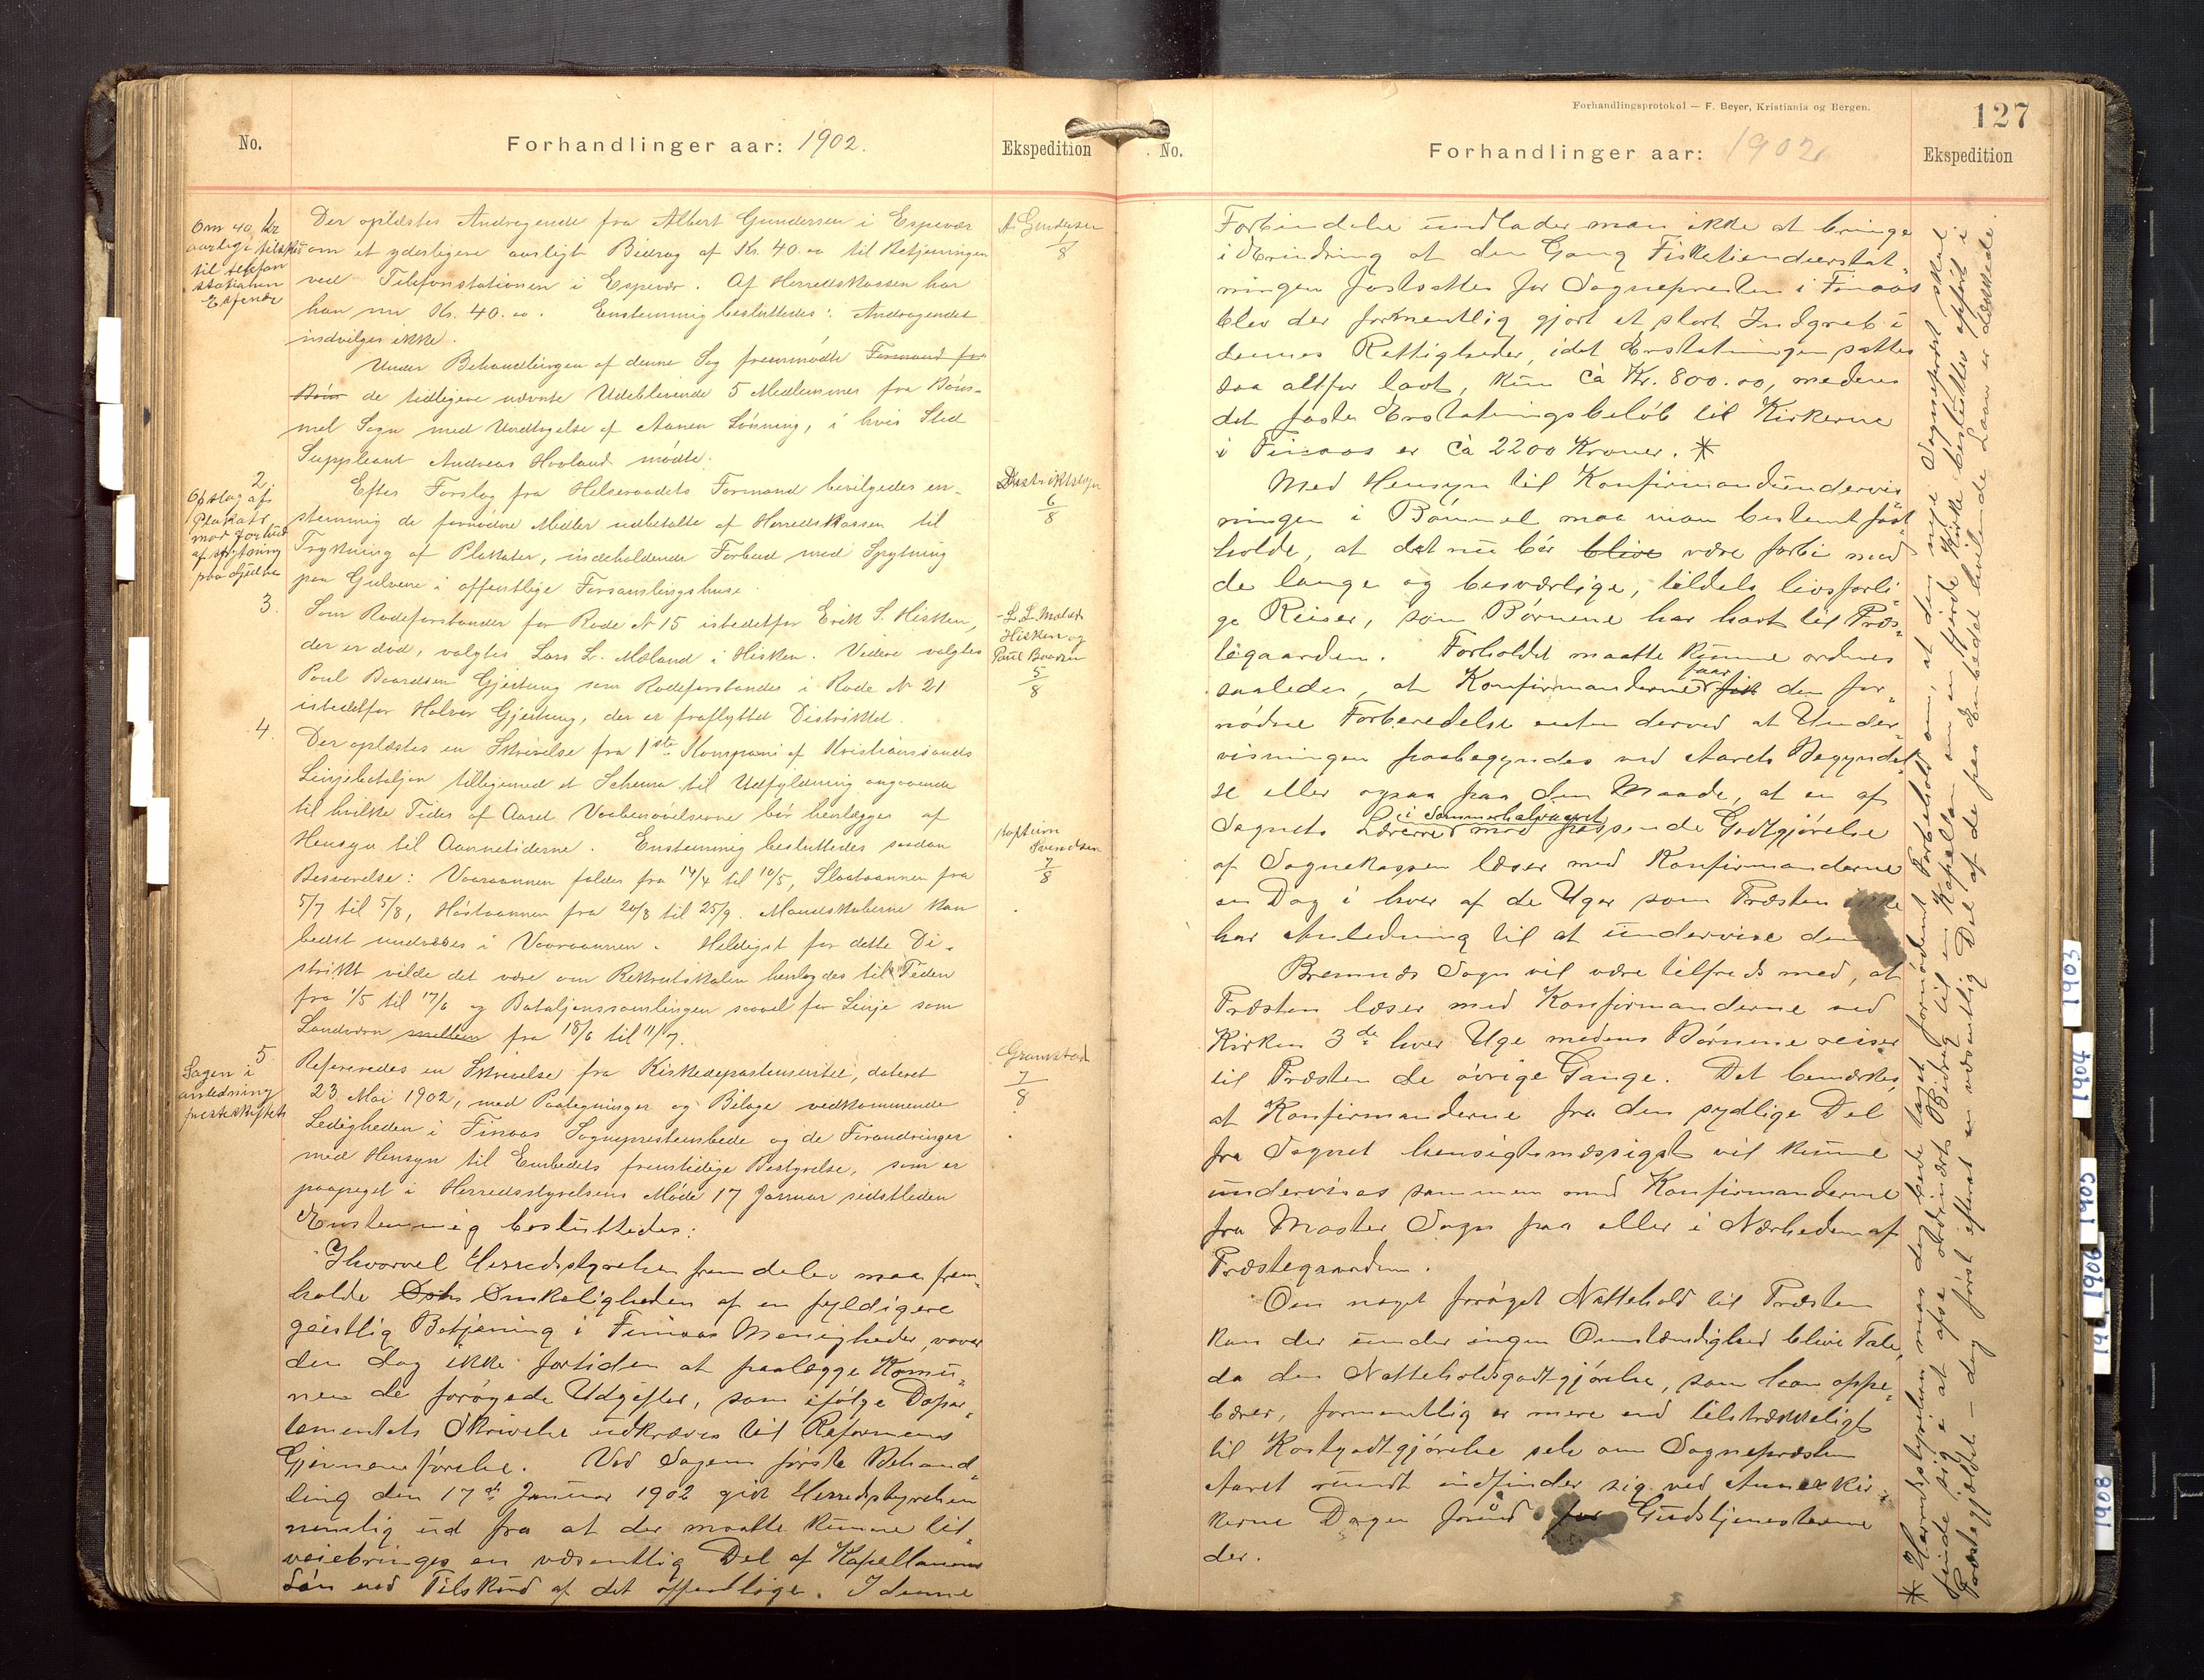 No.
Forhandlinger aar: 1902.
Ekspedition
Om 40 Kr
aarlige tilskud
til telefon
stationen
Espevær
Der oplæstes Andragende fra Albert Gundersen i Espevær
om et yderligere aarligt Bidrag af Kr. 40.00 til Betjeningen
ved Telefonstationen i Espevær. Af Herredskassen har
han nu Kr. 40.00. Enstemmig besluttedes: Andragendet
indvilges ikke.
Under Behandlingen af denne Sag fremmødte Formand for
Bøm de tidligere nævnte Udeblivende 5 Medlemmer fra Bøm-
mel Sogn med Undtagelse af Aanen Lønning, i hvis Sted
Suppleant Andreas Hovland mødte.
A. Gundersen
1/8
2
Opslag af
Plakater
mod forbud
af spytning
paa Gulve
Efter Forslag fra Helseraadets Formand bevilgedes en-
stemmig de fornødne Midler udbetalte af Herredskassen til
Trykning af Plakater, indeholdende Forbud mod Spytning
paa Gulvene i offentlige Forsamlingshuse.
Distriktslægen
6/8
3.
Som Rodeforstander for Rode № 15 istedetfor Erik S. Hisken,
der er død, valgtes Lars L. Mæland i Hisken. Videre valgtes
Poul Baardsen Gjeitung som Rodeforstander i Rode № 21
istedetfor Halvor Gjeitung, der er fraflyttet Distriktet.
L. L. Mæland
Hisken og
Paul Baardsen
5/8
4.
Der oplæstes en Skrivelse fra 1ste Kompani af Kristianssands
Linjebataljon tilligemed et Schema til Udfyldning angaaende
til hvilke Tider af Aaret Vaabenøvelserne bør henlægges af
Hensyn til Aannetiderne. Enstemmig besluttedes saadan
Besvarelse: Vaaraannen falder fra 14/4 til 10/5, Slaataannen fra
5/7 til 5/8, Høstaannen fra 20/8 til 25/9. Mandskaberne kan
bedst undværes i Vaaraannen. Heldigst for dette Di-
strikt vilde det være om Rekrutskolen henlagdes til Tiden
fra 1/5 til 17/6 og Bataljonssamlingen saavel for Linje som
Landværn mellem fra 18/6 til 11/7.
Kaptein
Svendsen
7/8
5.
Sagen i
anledning
presteskiftet
Refereredes en Skrivelse fra Kirkedepartementet, dateret
23. Mai 1902, med Paategninger og Bilage vedkommende
Ledigheden i Finaas Sogneprestembede og de Forandringer
med Hensyn til Embedets fremtidige Bestyrelse, som er
paapeget i Herredsstyrelsens Møde 17 Januar sidstleden
Enstemmig besluttedes:
Ihvorvel Herredsstyrelsen fremdeles maa frem-
holde Ønskeligheden af en fyldigere
geistlig Betjening i Finaas Menigheder, vover
den dog ikke fortiden at paalægge Komu-
nen de forøgede Udgifter, som ifølge Depar-
tementets Skrivelse udkræves til Reformens
Gjennemførelse. Ved Sagens første Behand-
ling den 17de Januar 1902 gik Herredsstyrelsen
nemlig ud fra at der maatte kunne til-
veiebringes en væsentlig Del af Kapellanens
Løn ved Tilskud af det offentlige. I denne
Gramstad
7/8
Forhandlingsprotokol — F. Beyer, Kristiania og Bergen.
127
No.
Forhandlinger aar: 1902
Ekspedition
Forbindelse undlader man ikke at bringe
i Erindring at den Gang Fisketiendeerstat-
ningen fastsattes for Sognepresten i Finaas
blev der formentlig gjort et stort Indgreb i
dennes Rettigheder, idet Erstatningen sattes
saa altfor lavt, kun cà Kr. 800.00, medens
det faste Erstatningsbeløb til Kirkerne
i Finaas er cà 2200 Kroner. *
Med Hensyn til Konfirmandundervis-
ningen i Bømmel maa man bestemt fast
holde, at det nu bør blive være forbi med
de lange og besværlige, tildels livsfarli-
ge Reiser, som Børnene har havt til Præs-
tegaarden. Forholdet maatte kunne ordnes
saaledes, at Konfirmanderne faar fik den for-
nødne Forberedelse enten derved at Under-
visningen paabegyndes ved Aarets Begyndel-
se eller ogsaa paa den Maade, at en af
Sognets Lærerne i Sommerhalvaaret mod passende Godtgjørelse
af Sognekassen læser med Konfirmanderne
en Dag i hver af de Uger som Præsten ikke
har Anledning til at undervise dem.
Bremnes Sogn vil være tilfreds med, at
Præsten læser med Konfirmanderne ved
Kirken 3de hver Uge medens Børnene reiser
til Præsten de øvrige Gange. Det bemærkes,
at Konfirmanderne fra den sydlige Del
fra Sognet hensigtsmæssigst vil kunne
undervises sammen med Konfirmanderne
fra Moster Sogn paa eller i Nærheden af
Præstegaarden.
Om noget forøget Nattehold til Præsten
kan der under ingen Omstændighed blive Tale,
da den Natteholdsgodtgjørelse, som han oppe-
bærer, formentlig er mere end tilstrækkeligt
til Kostgodtgjørelse selv om Sognepræsten
Aaret rundt indfinder sig ved Annexkir-
kerne Dagen forud for Gudstjenesterne
der.
* Herredsstyrelsen maa derhos tage fornødent Forbehold om, at den nye Sogneprest skal
finde sig i at afse ordinært Bidrag til en Kapellan om en fjerde Kirke besluttes opført i
Præstegjældet – dog først efterat en væsentlig Del af de paa Embedet hvilende Laan er dækkede.
1903
1904
1905
1906
1908